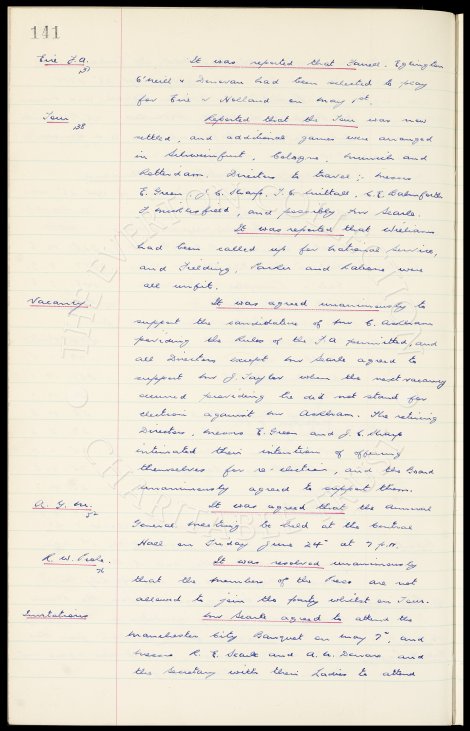 141
Eire F.A.
137
It was reported that Farrell, Eglington
O'Neill & Donovan had been selected to play
for Eire v Holland on May 1st.
Tour
138
Reported that the Tour was now
settled, and additional games were arranged
in Schweinfurt, Cologne, Munich and
Rotterdam. Directors to travel:- Messrs
E. Green, J. C. Sharp, T. C. Nuttall, C. E. Balmforth
F. Micklesfield, and possibly Mr Searle.
It was reported that Williams
had been called up for National Service,
and Fielding, Parker and Catterick were
all unfit.
Vacancy.
It was agreed unanimously to
support the candidature of Mr C. Askham
providing the Rules of the F.A. permitted, and
all Directors except Mr Searle agreed to
support Mr J. Taylor when the next vacancy
occurred providing he did not stand for
election against Mr Askham. The retiring
Directors, Messrs E. Green and J. C. Sharp
intimated their intention of offering
themselves for re-election, and the Board
unanimously agreed to support them.
A. G. M.
It was agreed that the Annual
General Meeting be held at the Central
Hall on Friday June 24th at 7 p.m.
76
It was resolved unanimously
that the members of the Press are not
allowed to join the party whilst on Tour.
Invitations
Mr Searle agreed to attend the
Manchester City Banquet on May 7th, and
Messrs R. E. Searle and A. W. Denaro and
the Secretary with their Ladies to attend